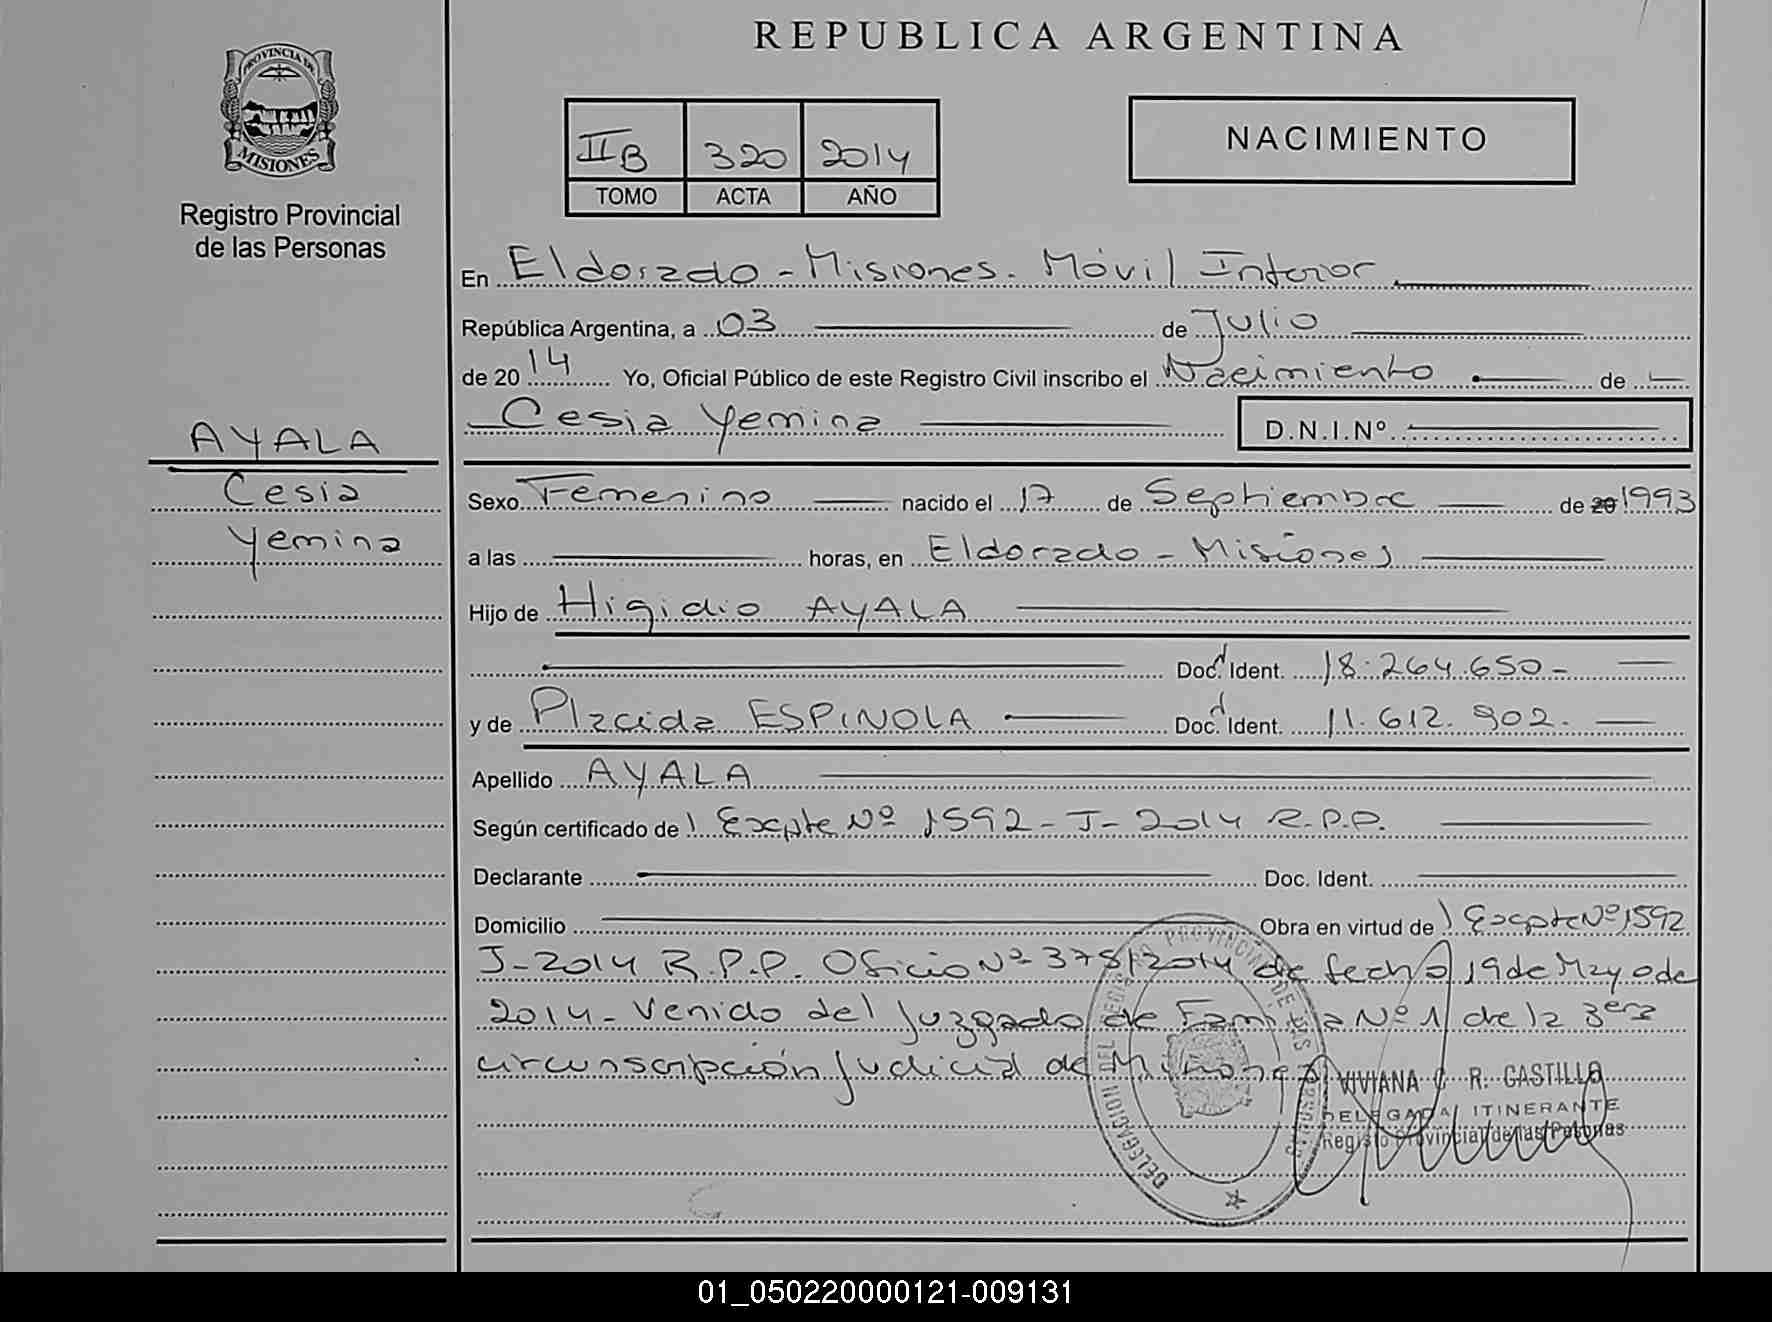 REPUBLICA ARGENTINA
PROVINCIA DE
MISIONES
Registro Provincial
de las Personas
IIB 320 2014
TOMO ACTA AÑO
NACIMIENTO
En Eldorado - Misiones. Móvil Interior
República Argentina, a 03 de Julio
de 20 14 Yo, Oficial Público de este Registro Civil inscribo el Nacimiento de
Cesia Yemina D.N.I.Nº
AYALA
Cesia
Yemina
Sexo Femenino nacido el 17 de Septiembre de 20 1993
a las horas, en Eldorado - Misiones
Hijo de Higidio AYALA
Doc. Ident. 18.264.650-
y de Placida ESPINOLA Doc. Ident. 11.612.902.
Apellido AYALA
Según certificado de Expte Nº 1592-J-2014 R.P.P.
Declarante Doc. Ident.
Domicilio Obra en virtud de Expte Nº 1592
J-2014 R.P.P. Oficio Nº 378/2014 de fecha 19 de Mayo de
2014- Venido del Juzgado de Familia Nº 1 de la 3era
circunscripción Judicial de Misiones
VIVIANA C. R. CASTILLO
DELEGADA ITINERANTE
Registro Provincial de las Personas
01_050220000121-009131